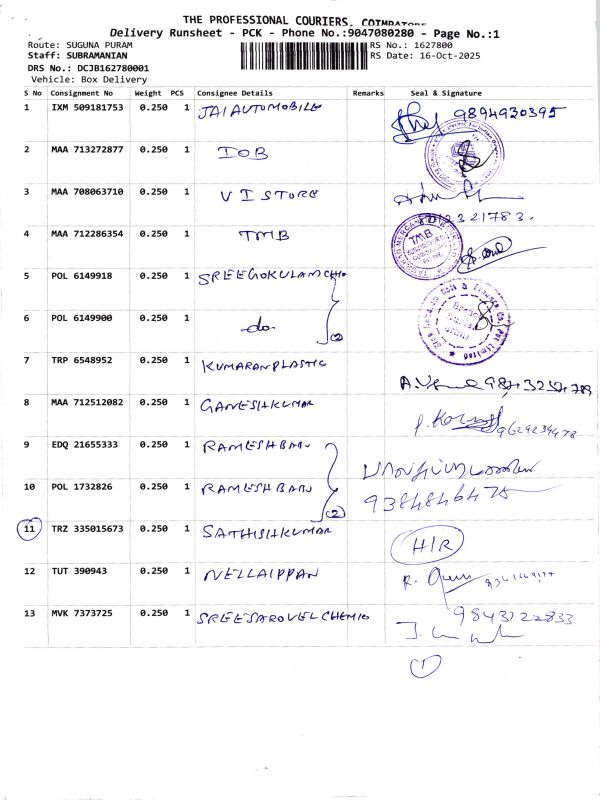 THE PROFESSIONAL COURIERS, COIMBATORE
Delivery Runsheet - PCK - Phone No.:9047080280 - Page No.:1
Route: SUGUNA PURAM RS No.: 1627800
Staff: SUBRAMANIAN RS Date: 16-Oct-2025
DRS No.: DCJB162780001
Vehicle: Box Delivery
S No Consignment No Weight PCS Consignee Details Remarks Seal & Signature
1 IXM 509181753 0.250 1 JAI AUTOMOBILE 9894930395
2 MAA 713272877 0.250 1 IOB
3 MAA 708063710 0.250 1 V I STORE
4 MAA 712286354 0.250 1 TMB TMB
5 POL 6149918 0.250 1 SREEGOKULAMCHIO
6 POL 6149900 0.250 1 do. (2)
7 TRP 6548952 0.250 1 KUMARANPLASTIC
8 MAA 712512082 0.250 1 GANESHKUMAR 9629234478
9 EDQ 21655333 0.250 1 RAMESHBABU
10 POL 1732826 0.250 1 RAMESHBABU (2) 9384846475
11 TRZ 335015673 0.250 1 SATHISHKUMAR H/R
12 TUT 390943 0.250 1 NELLAIPPAN
13 MVK 7373725 0.250 1 SREESAROVELCHEMIO 9843122833
1